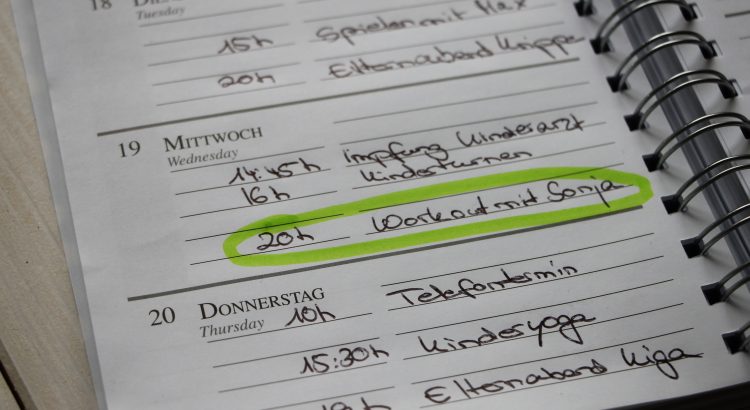 18
Tuesday
15h Spielen mit Max
20h Elternabend Krippe
19 MITTWOCH
Wednesday
14:45h Impfung Kinderarzt
16h Kinderturnen
20h Workout mit Sonja
20 DONNERSTAG
Thursday
10h Telefontermin
15:30h Kinderyoga
Elternabend Kiga